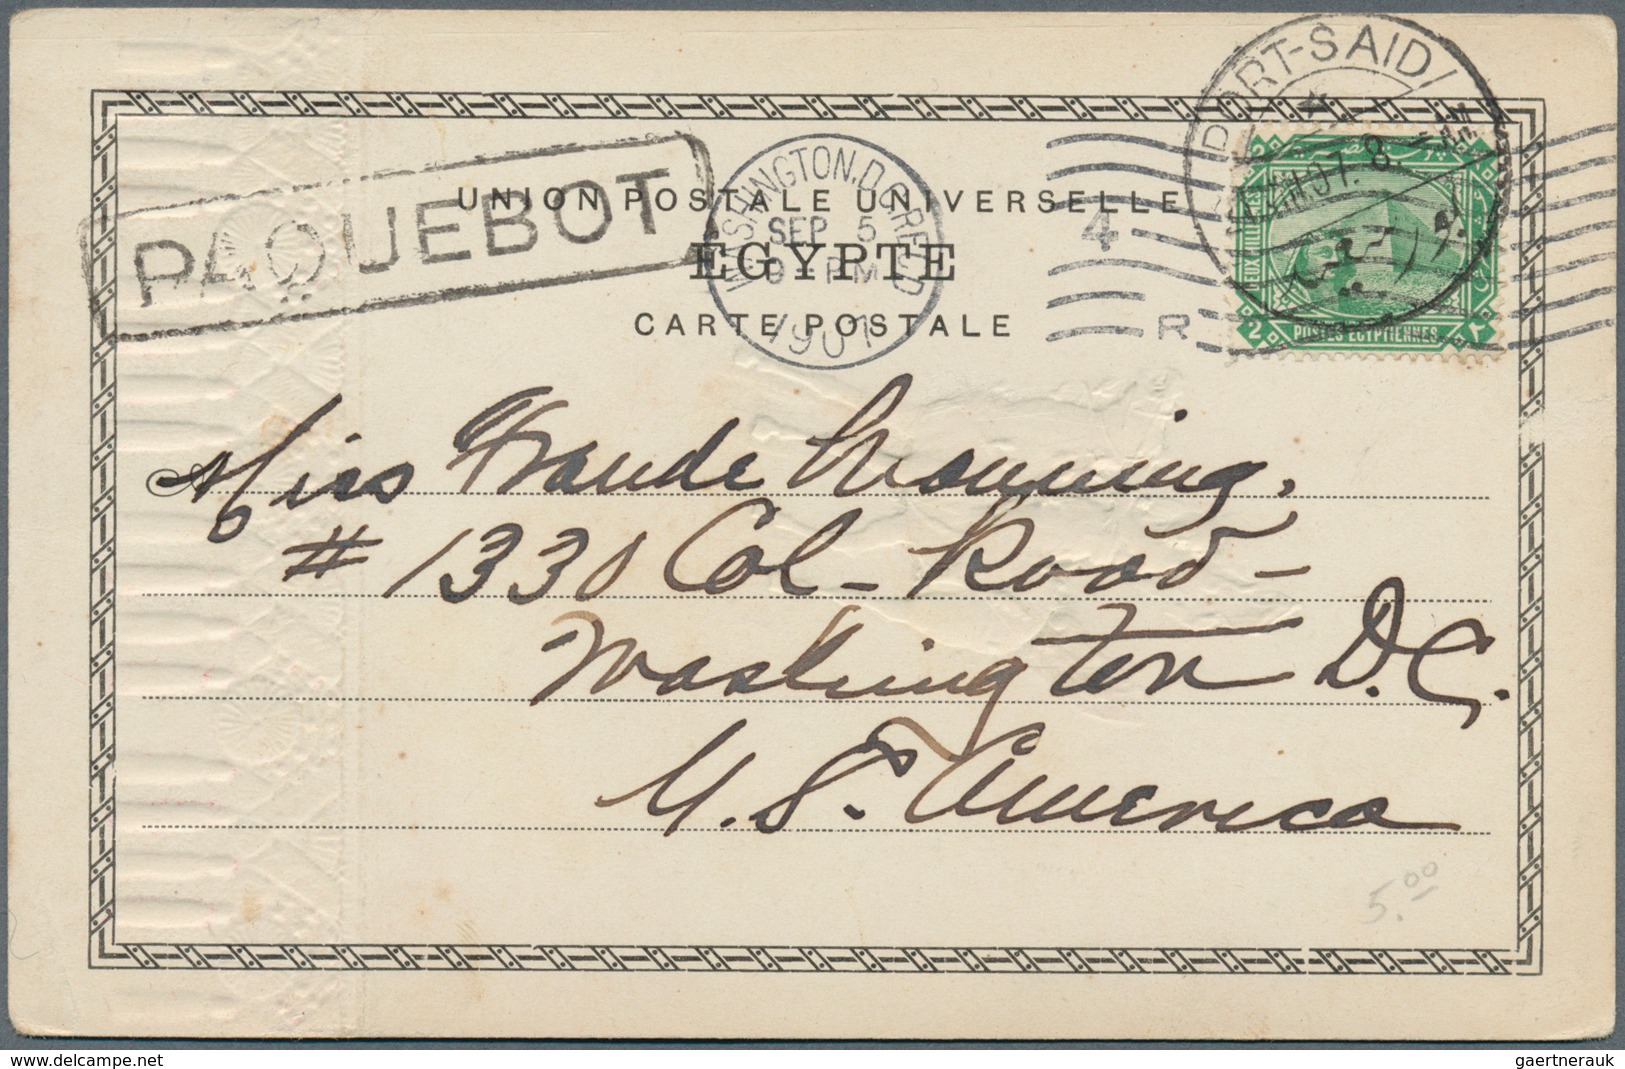 PORT-SAID
07. 8.
PAQUEBOT
WASHINGTON, D.C. REC'D
SEP 5
9 PM
1907
4
R
UNION POSTALE UNIVERSELLE
EGYPTE
CARTE POSTALE
2 ٢
DEUX MILLIEMES
بور سعيد
2 POSTES EGYPTIENNES ٢
Miss Maude Manning.
# 1330 Col- Road-
Washington D.C.
U.S. America
5.00
gaertnerauk
delcampe.net